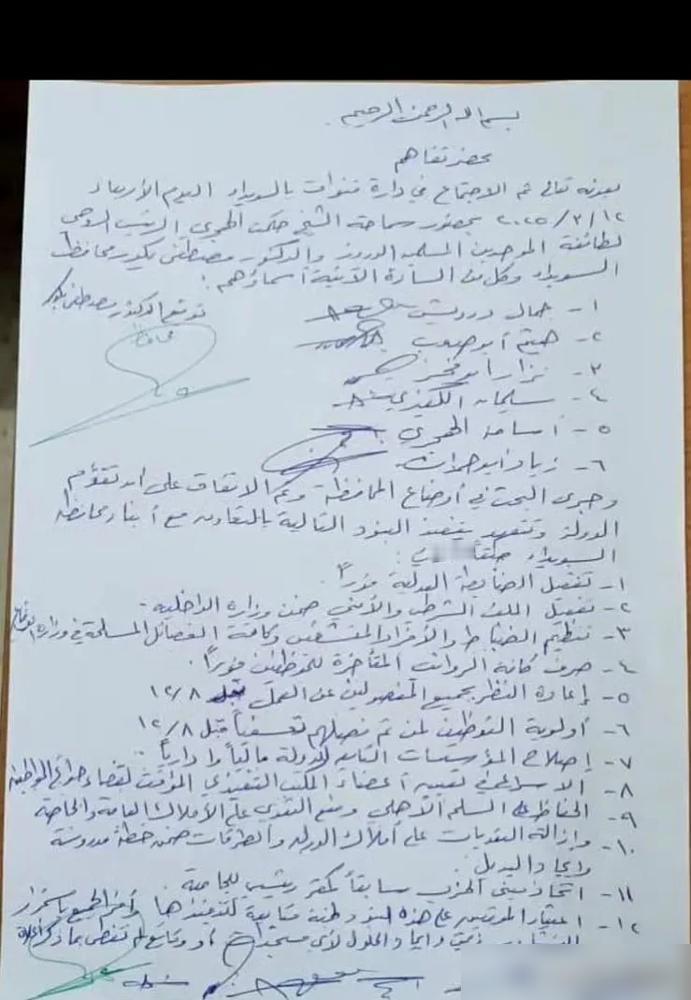 بسم الله الرحمن الرحيم
محضر تفاهم
بعونه تعالى تم الاجتماع في دارة قنوات بالسويداء اليوم الأربعاء
١٢/٣/٢٠٢٥ بحضور سماحة الشيخ حكمت الهجري الرئيس الروحي
لطائفة الموحدين المسلمين الدروز والدكتور مصطفى بكور محافظ
السويداء وكل من السادة الآتية أسماؤهم:
توقيع الدكتور مصطفى بكور
١- جمال درويش
٢- هيثم أبو صعب
٣- نزار أبو فخر
٤- سليمان الكفيري
٥- أسامة الهجري
٦- زياد أبو حمدان
وجرى البحث في أوضاع المحافظة وتم الاتفاق على أن تقوم
الدولة وتتعهد بتنفيذ البنود التالية بالتعاون مع أبناء محافظة
السويداء
١- تفعيل الضابطة العدلية فوراً.
٢- تفعيل الملف الشرطي والأمني ضمن وزارة الداخلية.
٣- تنظيم الضباط والأفراد المنشقين وكافة الفصائل المسلحة في وزارة الدفاع
٤- صرف كافة الرواتب المتأخرة للموظفين فوراً.
٥- إعادة النظر بجميع المفصولين عن العمل قبل ١٢/٨
٦- أولوية التوظيف لمن تم فصلهم تعسفياً قبل ١٢/٨
٧- إصلاح المؤسسات التابعة للدولة مالياً وإدارياً.
٨- الاسراع في تعيين أعضاء المكتب التنفيذي المؤقت لقضاء حوائج المواطنين
٩- الحفاظ على السلم الأهلي ومنع التعدي على الأملاك العامة والخاصة
١٠- وإزالة التعديات على أملاك الدولة والطرقات ضمن خطة مدروسة
وإيجاد البديل.
١١- اتخاذ مبنى الحزب سابقاً كمقر رئيسي للجامعة.
١٢- اعتبار الموقعين على هذه البنود لجنة متابعة لتنفيذها